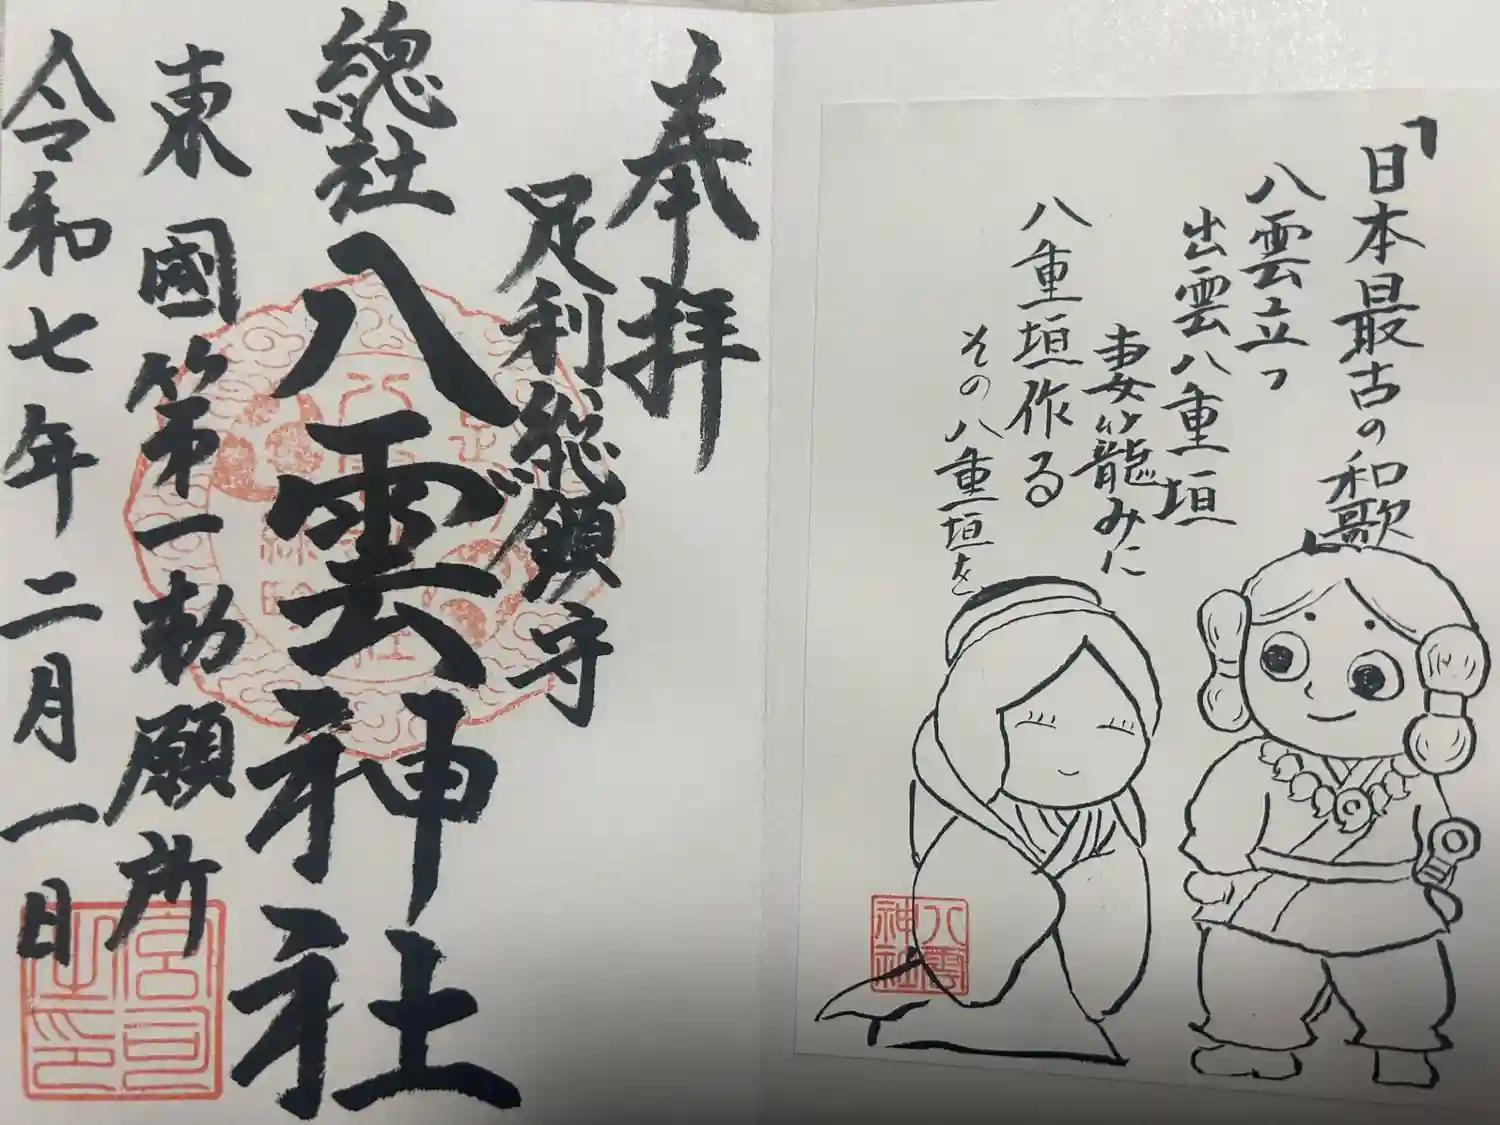 「日本最古の和歌
八雲立つ
出雲八重垣
妻籠みに
八重垣作る
その八重垣を
奉拝
足利総鎮守
總社
八雲神社
東國第一勅願所
令和七年二月一日
八雲
神社
宮司
之印